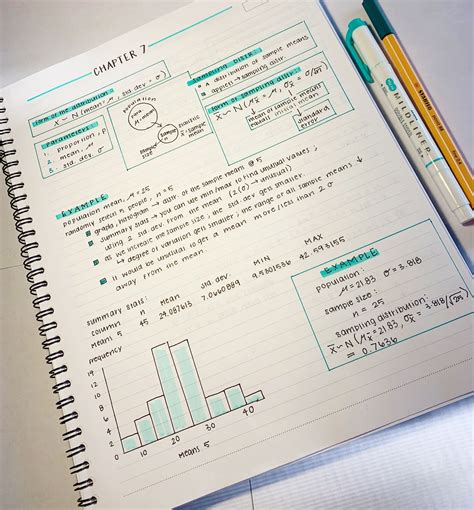 CHAPTER 7
form of the distribution
X ~ N(mean, μ, std dev. = σ)
Parameters
1. proportion, p
2. mean, μ
3. std. dev. σ
population
mean, μ
sample
sample size
statistic
sample mean
SAMPLING DISTR.
A distribution of sample means
applet → sampling distr.
form of sampling distr.
mean of sample means
equal initial mean
standard error
EXAMPLE
population mean, μ = 25
randomly select n people, n = 5
graph, histogram → distr. of the sample mean @ 5
summary stats: you can use min/max to find unusual values,
using 2 std. dev. from the mean (2(σ) → unusual)
as we increase the sample size, the std. dev. gets smaller.
↳ degree of variation gets smaller; the range of all sample means ↓
It would be unusual to get a mean more/less than 2σ
away from the mean.
summary stats:
column n mean std dev. MIN MAX
Mean 5 45 24.087613 7.0660889 9.5301536 42.593155
frequency
14
12
10
8
6
4
2
0 10 20 30 40
Means 5
EXAMPLE
population:
μ = 2183 σ = 3.818
sample size:
n = 25
sampling distribution:
x̄ ~ N(μx̄ = 2183, σx̄ = 3.818/√25)
= 0.7636
MILDLINER
STABILO